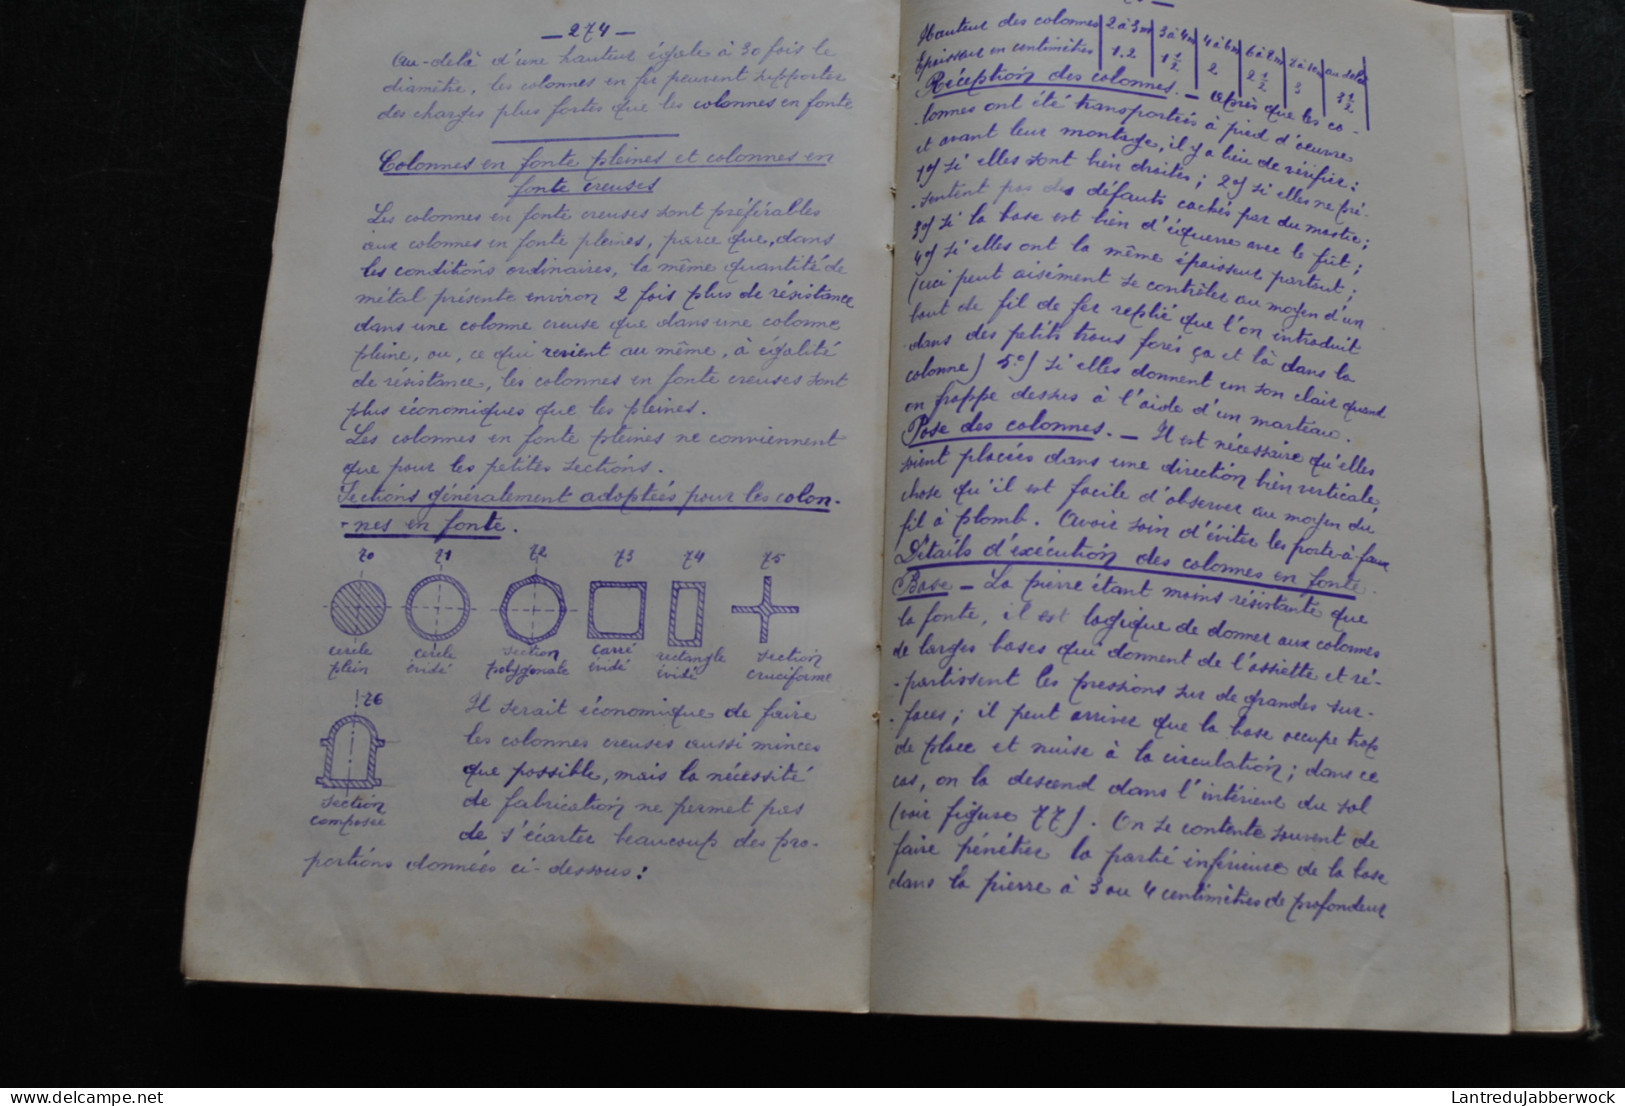 — 274 —
Au-delà d'une hauteur égale à 30 fois le
diamètre, les colonnes en fer peuvent supporter
des charges plus fortes que les colonnes en fonte
Colonnes en fonte pleines et colonnes en
fonte creuses
Les colonnes en fonte creuses sont préférables
aux colonnes en fonte pleines, parce que, dans
les conditions ordinaires, la même quantité de
métal présente environ 2 fois plus de résistance
dans une colonne creuse que dans une colonne
pleine, ou, ce qui revient au même, à égalité
de résistance, les colonnes en fonte creuses sont
plus économiques que les pleines.
Les colonnes en fonte pleines ne conviennent
que pour les petites sections.
Sections généralement adoptées pour les colon-
-nes en fonte.
70 71 72 73 74 75
cercle plein
cercle évidé
section polygonale
carré évidé
rectangle évidé
section cruciforme
76
section composée
Il serait économique de faire
les colonnes creuses aussi minces
que possible, mais la nécessité
de fabrication ne permet pas
de s'écarter beaucoup des pro-
portions données ci-dessous:
Hauteur des colonnes 2 à 3m 3 à 4m 4 à 6m 6 à 7m 7 à 8m au delà
Epaisseur en centimètres 1.2 1 1/2 2 2 1/2 3 3 1/2
Réception des colonnes. — Après que les co-
-lonnes ont été transportées à pied d'œuvre
et avant leur montage, il y a lieu de vérifier:
1°) si elles sont bien droites; 2°) si elles ne pré-
-sentent pas des défauts cachés par du mastic;
3°) si la base est bien d'équerre avec le fût;
4°) si elles ont la même épaisseur partout;
(ceci peut aisément se contrôler au moyen d'un
bout de fil de fer replié que l'on introduit
dans des petits trous forés ça et là dans la
colonne) 5°) si elles donnent un son clair quand
on frappe dessus à l'aide d'un marteau.
Pose des colonnes. — Il est nécessaire qu'elles
soient placées dans une direction bien verticale,
chose qu'il est facile d'observer au moyen du
fil à plomb. Avoir soin d'éviter les porte-à-faux
Détails d'exécution des colonnes en fonte.
Base — La pierre étant moins résistante que
la fonte, il est logique de donner aux colonnes
de larges bases qui donnent de l'assiette et ré-
-partissent les pressions sur de grandes sur-
-faces; il peut arriver que la base occupe trop
de place et nuise à la circulation; dans ce
cas, on la descend dans l'intérieur du sol
(voir figure 77). On se contente souvent de
faire pénétrer la partie inférieure de la base
dans la pierre à 3 ou 4 centimètres de profondeur
LantreduJabberwock